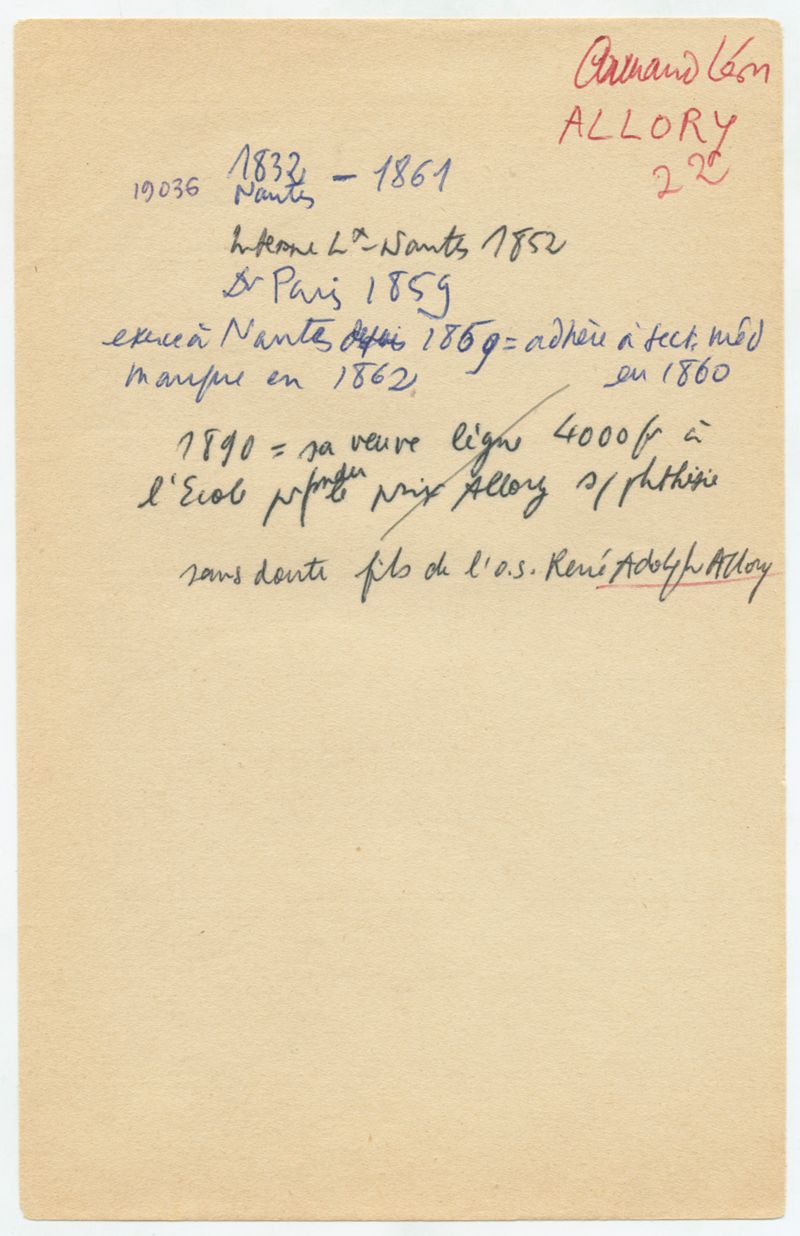 Armand Léon
ALLORY
22
19036 1832 - 1861
Nantes
Interne Nantes 1852
Dr Paris 1859
exerce à Nantes 1859 = adhère à sect. méd
manque en 1862 en 1860
1890 = sa veuve lègue 4000 fr à
l'Ecole pr fonder le prix Allory s/ phthisie
sans doute fils de l'o.s. René Adolphe Allory